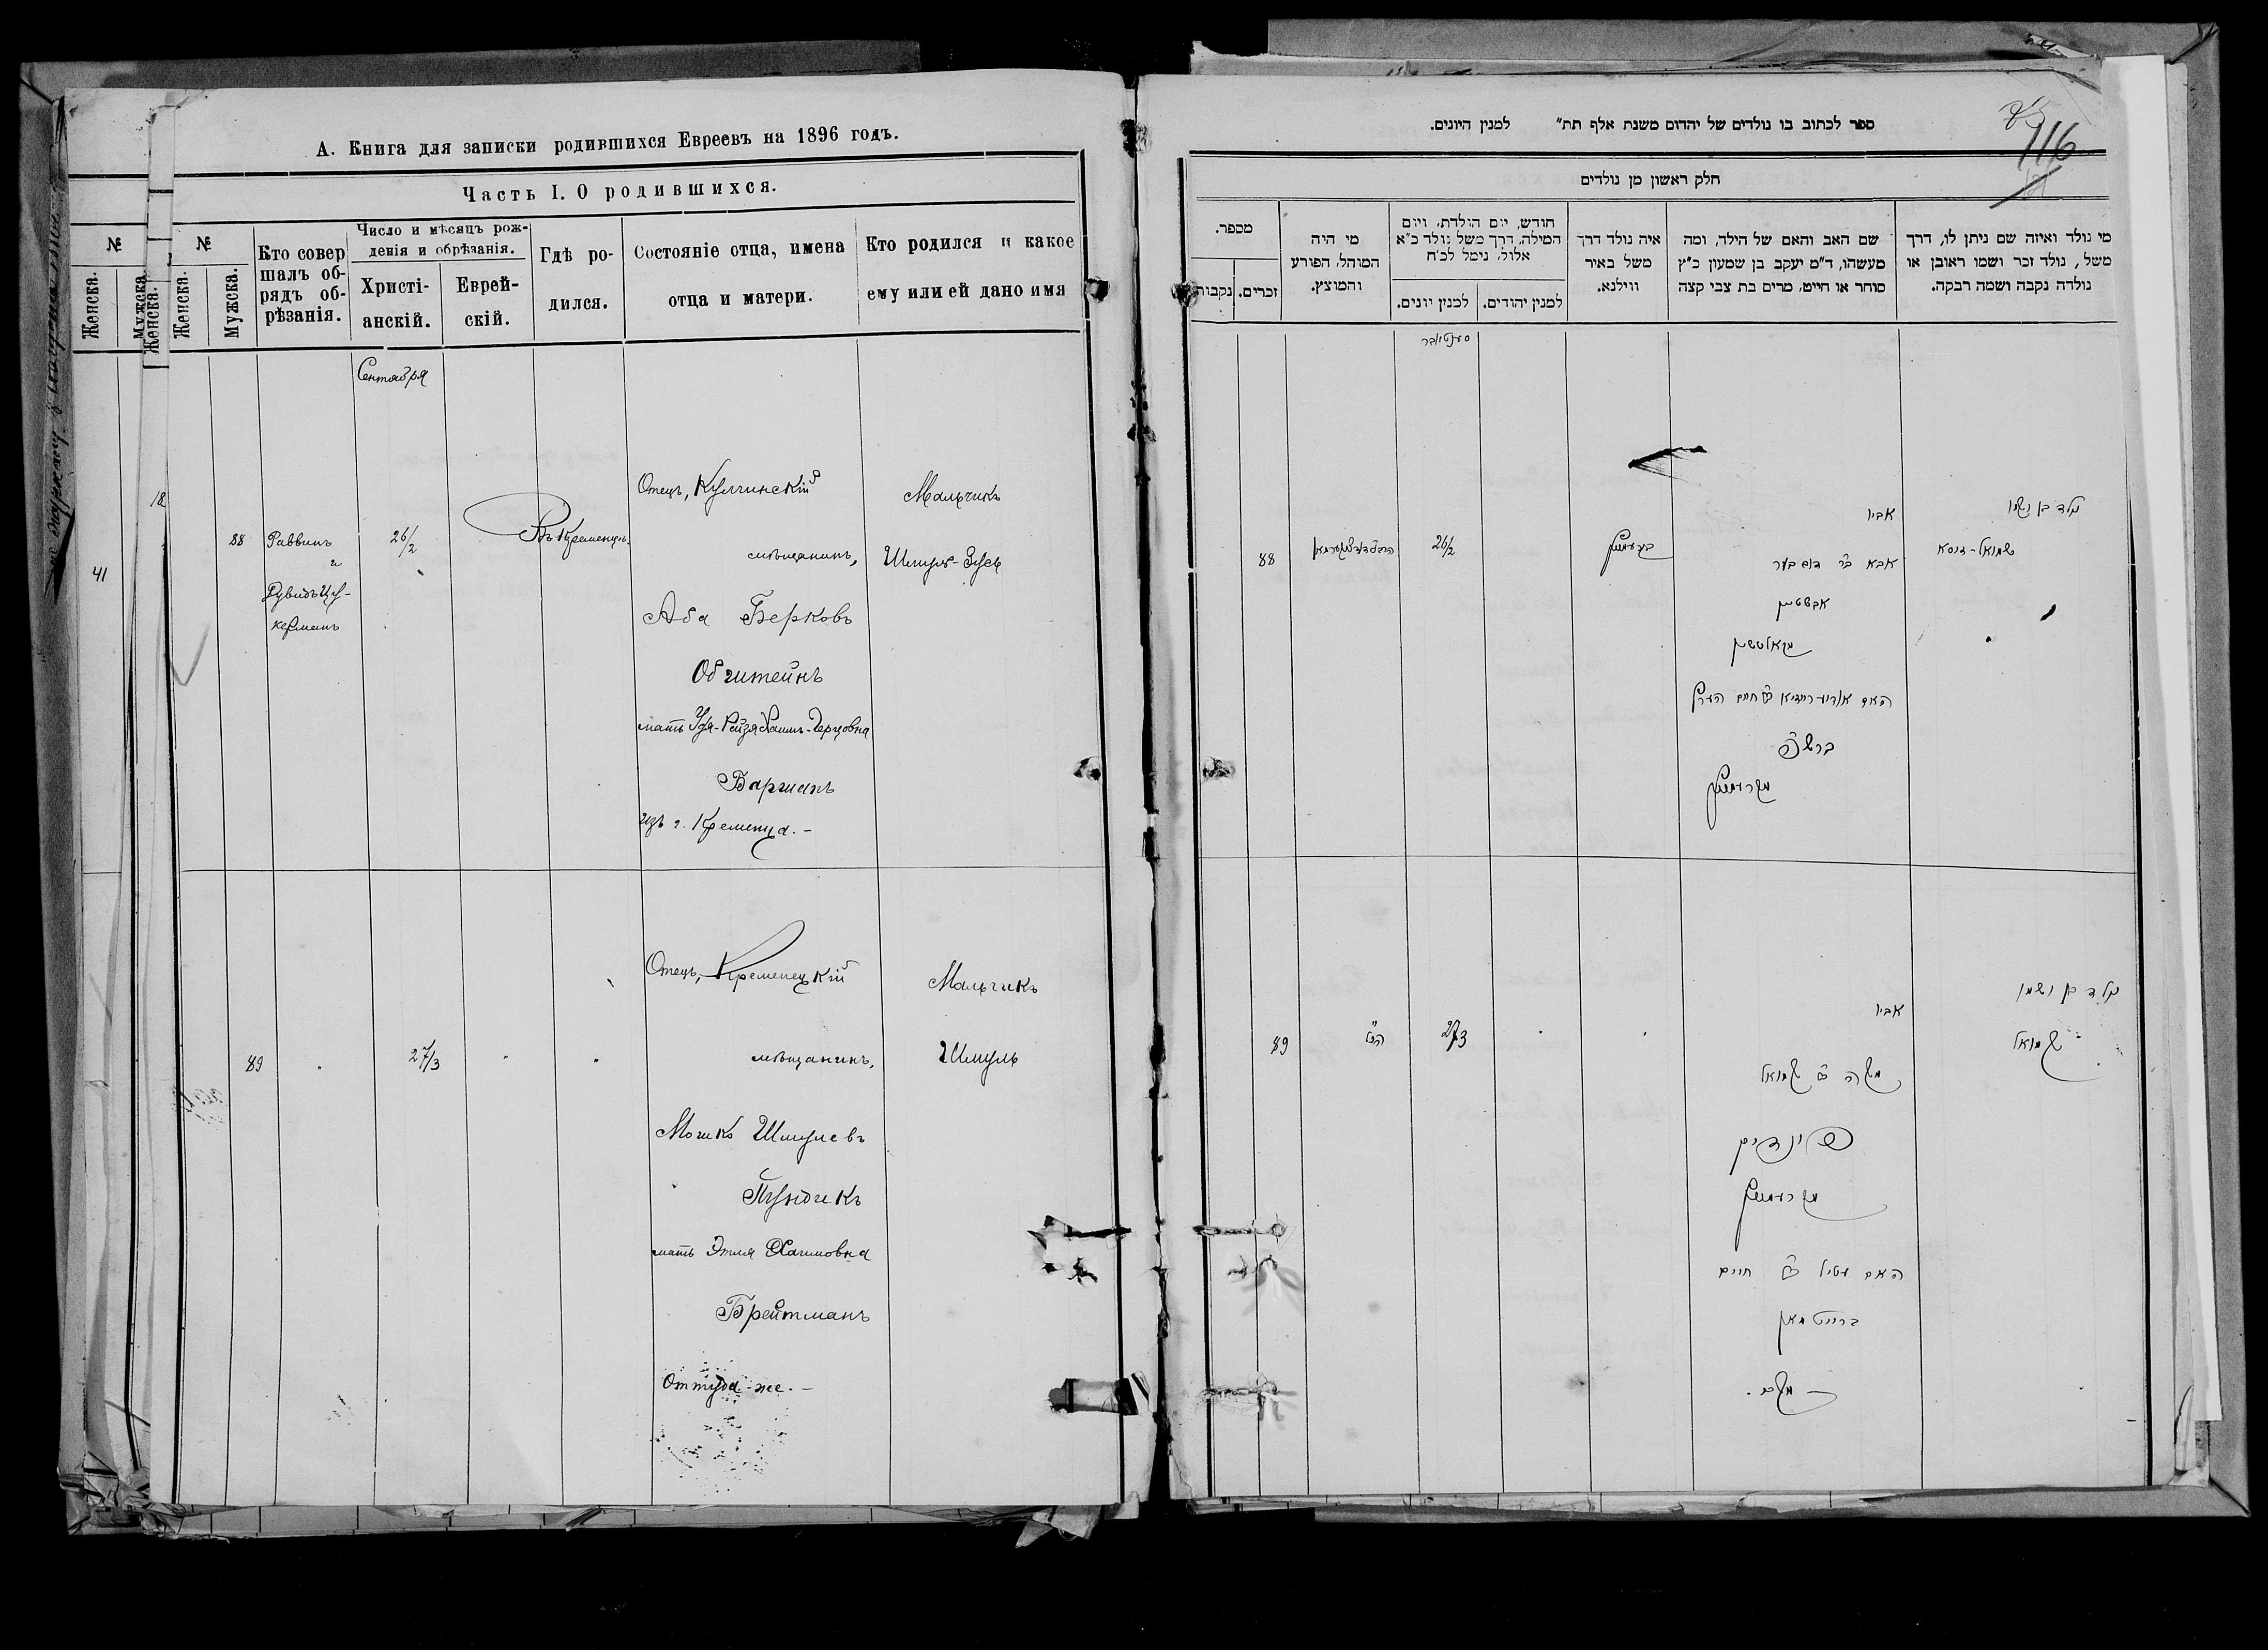 А. Книга для записки родившихся Евреевъ на 1896 годъ.
Часть I. О родившихся.
№
Женска.
Мужска.
Женска.
№
Женска.
Мужска.
Кто совер
шалъ об-
рядъ об-
рѣзанія.
Число и мѣсяцъ рож-
денія и обрѣзанія.
Христі-
анскій.
Еврей-
скій.
Гдѣ ро-
дился.
Состояніе отца, имена
отца и матери.
Кто родился и какое
ему или ей дано имя
Сентября
41
18
88
Раввинъ
и
Дувидъ Цу-
керманъ
26/2
Въ Кременцѣ.
Отецъ, Кульчинскій
мѣщанинъ,
Аба Берковъ
Обштейнъ
мать Удя-Рейзя Хаимъ-Герцовна
Баршакъ
изъ г. Кременца. -
Мальчикъ
Шмуль-Зусь
89
27/3
Отецъ, Кременецкій
мѣщанинъ,
Мошко Шмулевъ
Пундикъ
мать Этля Хаимовна
Брейтманъ
Оттуда-же. -
Мальчикъ
Шмуль
ספר לכתוב בו נולדים של יהדום משנת אלף תת״ למנין היונים.
116
חלק ראשון מן נולדים
מספר.
נקבות
זכרים.
מי היה
המוהל, הפורע
והמוצץ.
חודש, יום הולדת, ויום
המילה, דרך משל נולד כ״א
אלול, נימל לכ״ח
למנין יונים.
למנין יהודים.
איה נולד דרך
משל באיר
ווילנא.
שם האב והאם של הילד, ומה
מעשהו, ד״מ יעקב בן שמעון כ״ץ
סוחר או חייט, מרים בת צבי קצה
מי נולד ואיזה שם ניתן לו, דרך
משל, נולד זכר ושמו ראובן או
נולדה נקבה ושמה רבקה.
סענטיאבר
88
26/2
אביו
אבא ב״ר דוב בער
אבשטיין
נולד בן ושמו
שמואל-זוסא
89
27/3
אביו
משה ב״ר שמואל
פונדיק
מקרעמניץ
האם עטיל ב״ר חיים
ברייטמאן
נולד בן ושמו
שמואל